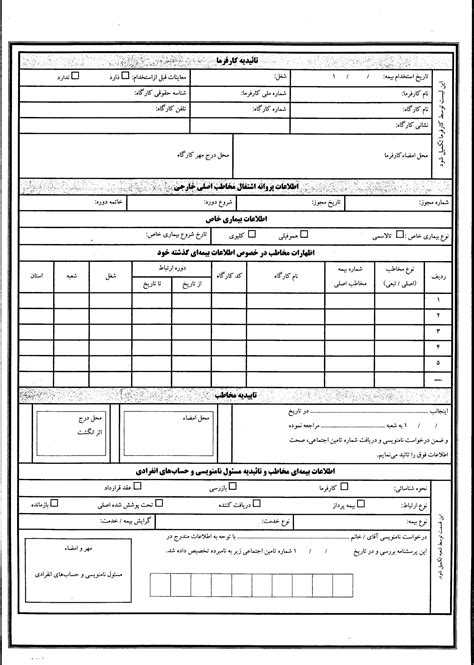 تائیدیه کارفرما
تاریخ استخدام بیمه: / / ۱ شغل: معاینات قبل ازاستخدام: دارد ندارد
نام کارفرما: شماره ملی کارفرما: شناسه حقوقی کارگاه:
نام کارگاه: شماره کارگاه: تلفن کارگاه:
نشانی کارگاه:
محل امضاءکارفرما محل درج مهر کارگاه
این لیست توسط کارفرما تکمیل شود
اطلاعات پروانه اشتغال مخاطب اصلی خارجی
شماره مجوز: تاریخ مجوز: شروع دوره: خاتمه دوره:
اطلاعات بیماری خاص
نوع بیماری خاص: تالاسمی هموفیلی کلیوی تارخ شروع بیماری خاص:
اظهارات مخاطب در خصوص اطلاعات بیمه‌ای گذشته خود
ردیف نوع مخاطب (اصلی / تبعی) شماره بیمه مخاطب اصلی نام کارگاه کد کارگاه دوره ارتباط شغل شعبه استان
از تاریخ تا تاریخ
۱
۲
۳
۴
۵
تاییدیه مخاطب
اینجانب در تاریخ
/ / ۱ به شعبه مراجعه نموده
و ضمن درخواست نامنویسی و دریافت شماره تامین اجتماعی، صحت
اطلاعات فوق را تائید می‌نمایم.
محل امضاء
محل درج
اثر انگشت
اطلاعات بیمه‌ای مخاطب و تائیدیه مسئول نامنویسی و حساب‌های انفرادی
نحوه شناسائی: کارفرما بازرسی عقد قرارداد
نوع ارتباط: بیمه پرداز دریافت کننده تحت پوشش شده اصلی بازمانده
نوع بیمه: نوع خدمت: گرایش بیمه / خدمت:
درخواست نامنویسی آقای / خانم با توجه به اطلاعات مندرج در
این پرسشنامه بررسی و در تاریخ / / ۱ شماره تامین اجتماعی زیر به نامبرده تخصیص داده شد.
مهر و امضاء
مسئول نامنویسی و حساب‌های انفرادی
این قسمت توسط شعبه تکمیل شود.